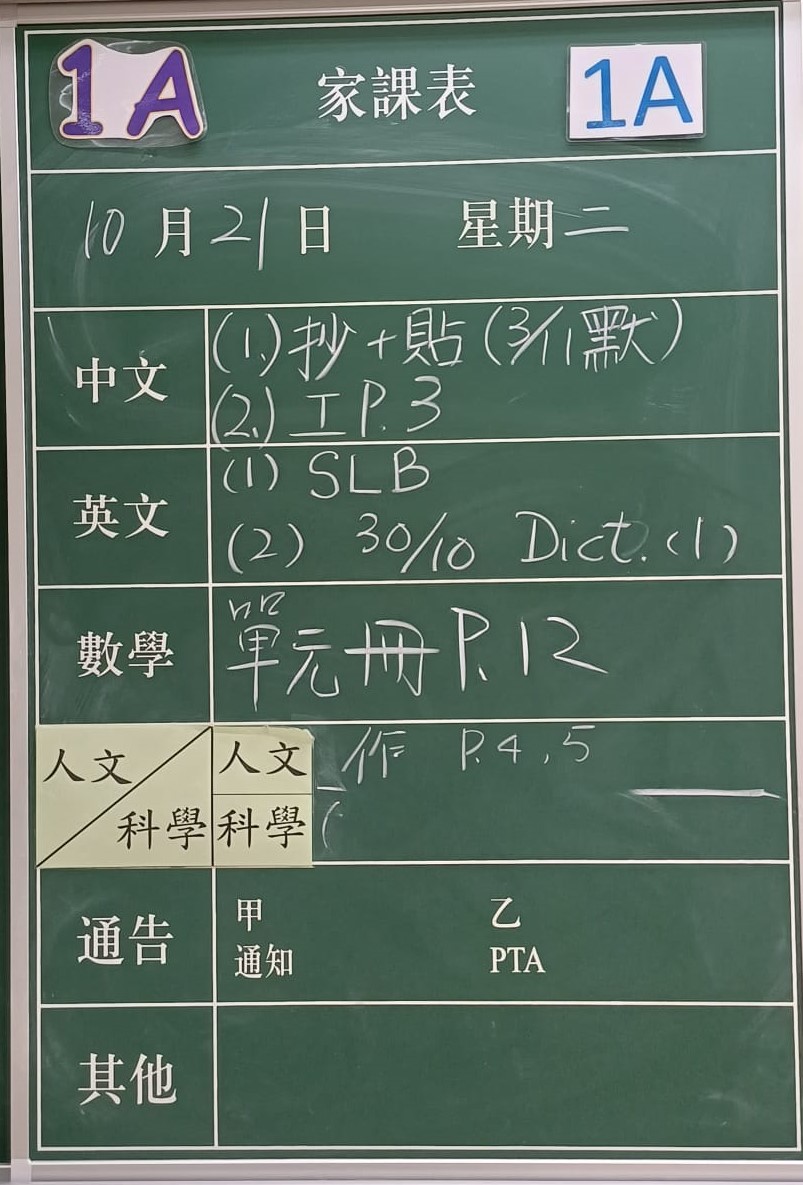 1A 家課表 1A
10月21日 星期二
中文 (1.)抄+貼(3/11默)
(2.)工P.3
英文 (1) SLB
(2) 30/10 Dict.(1)
數學 單元冊P.12
人文 人文 作 P.4,5
科學 科學
通告 甲 乙
通知 PTA
其他